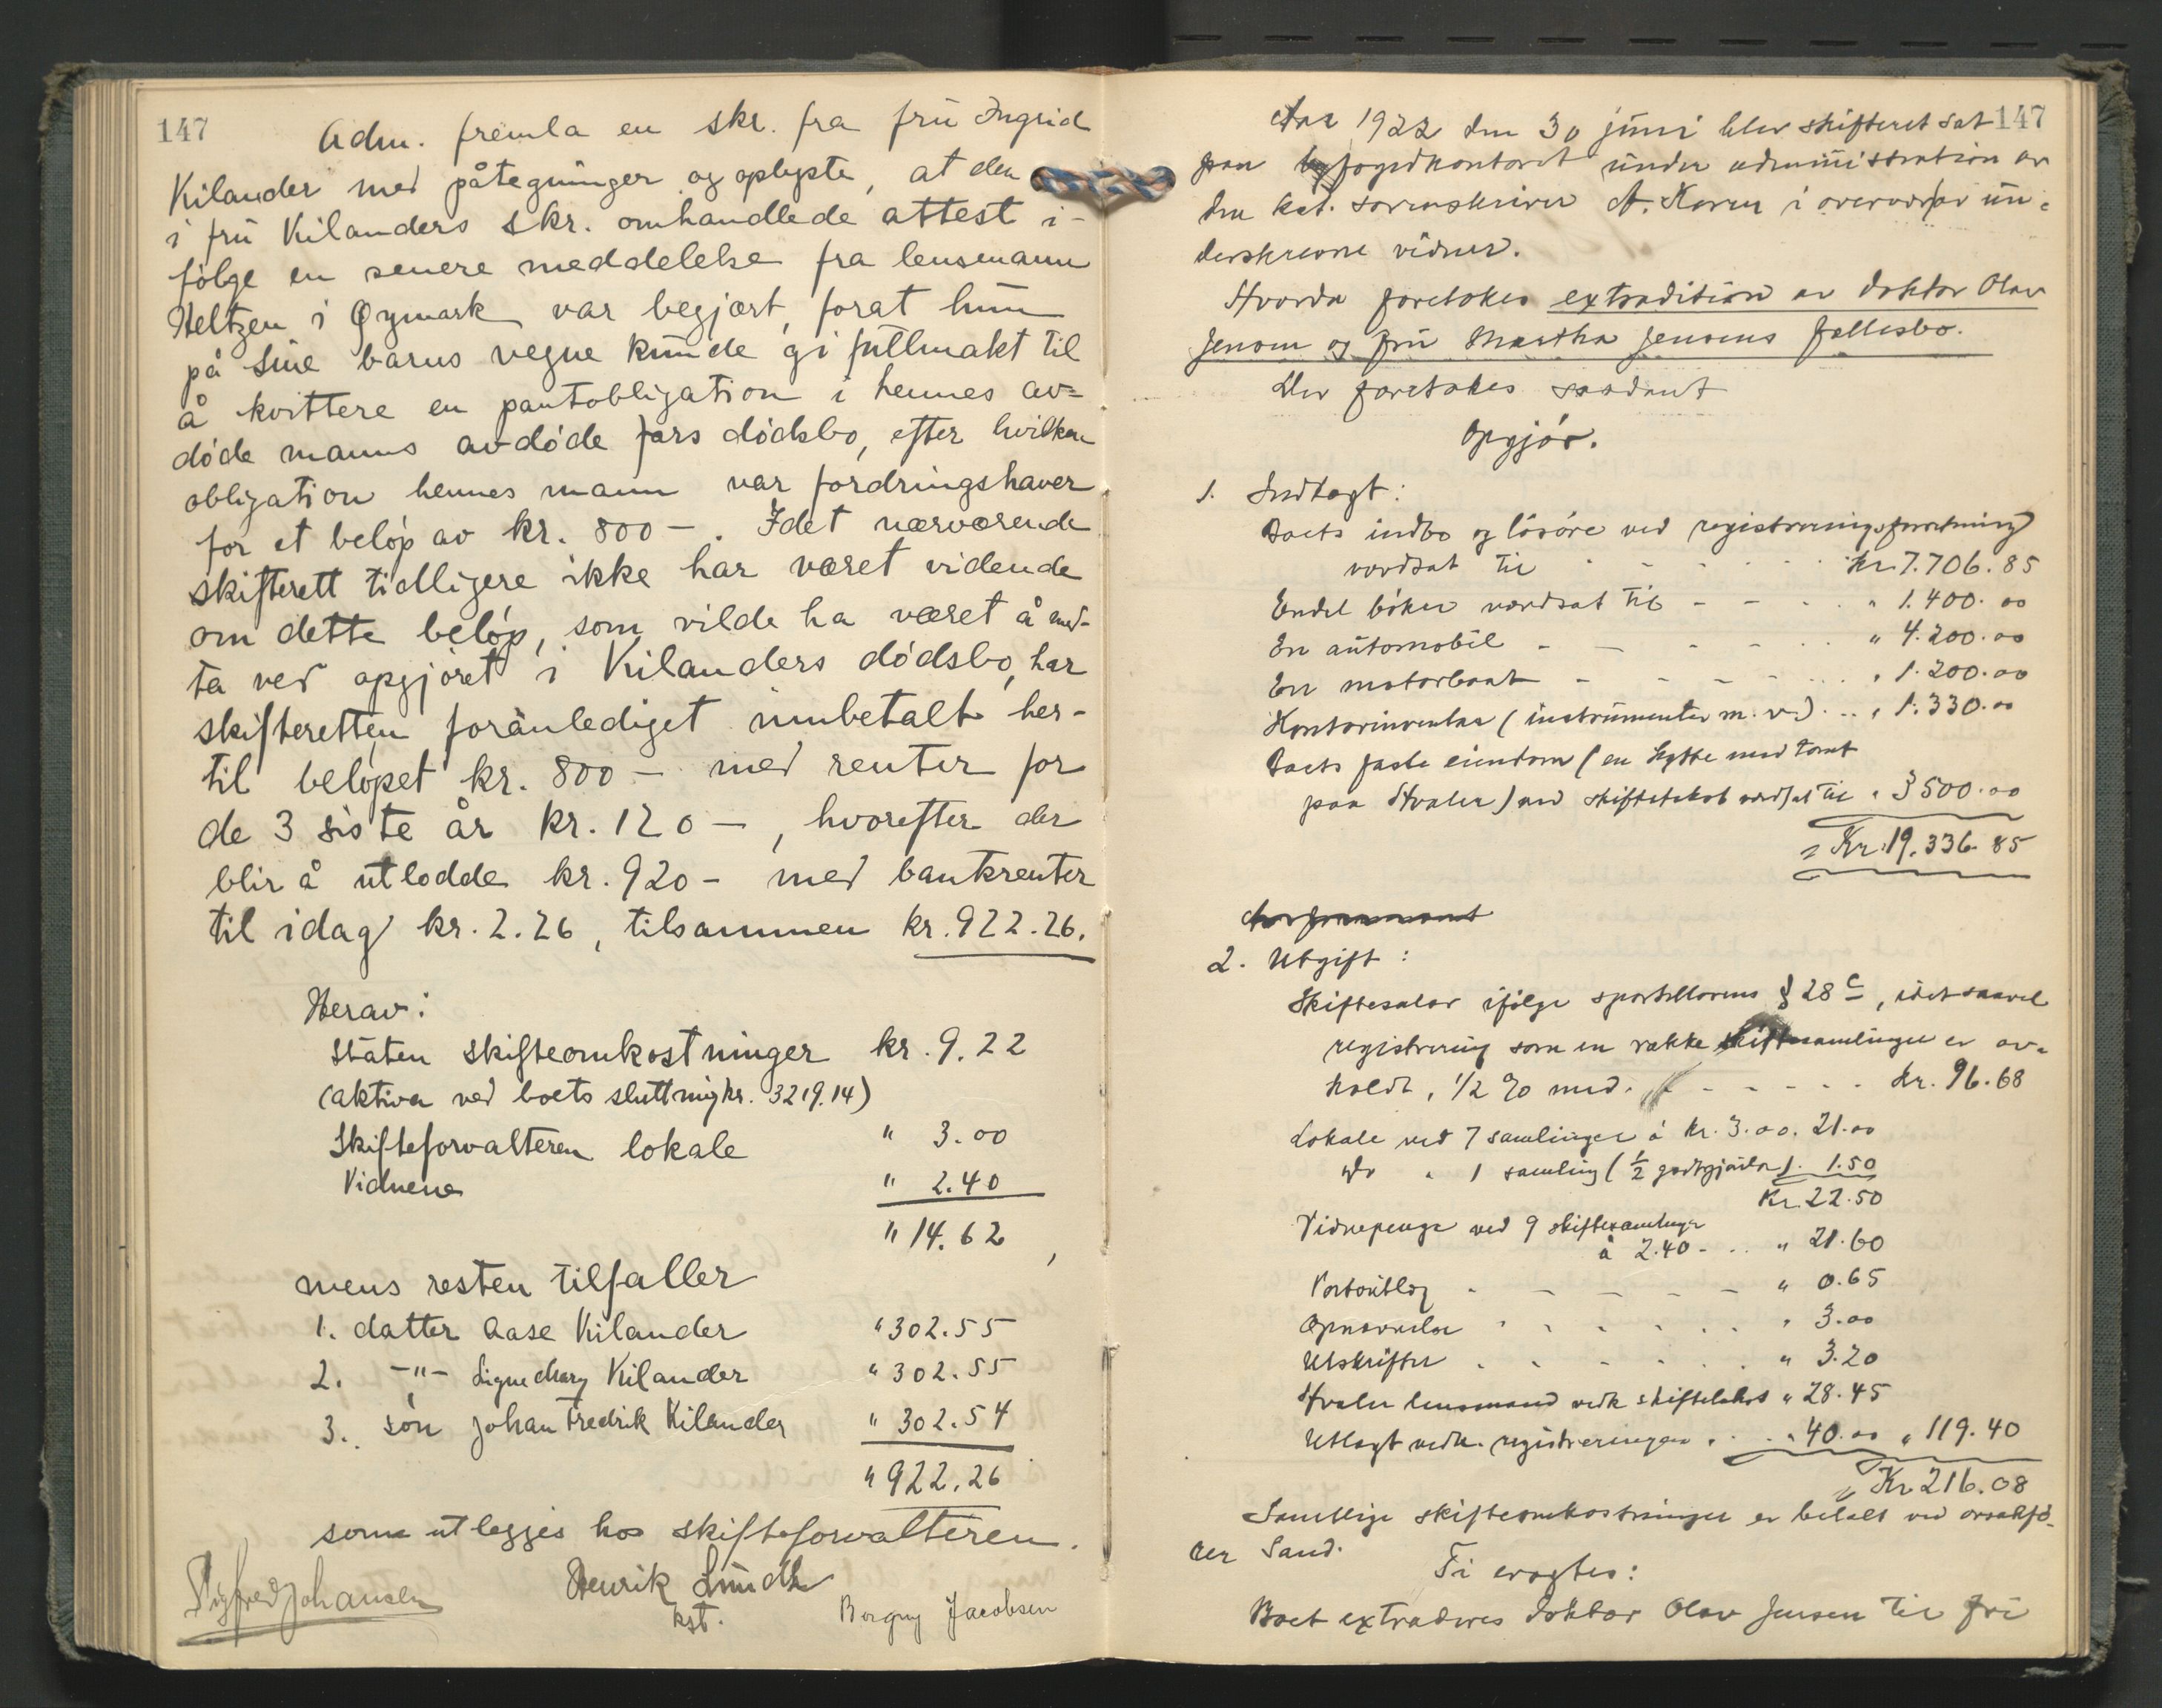 147
Adm. fremla en skr. fra frü Ingrid
Kilander med påtegninger og oplyste, at den
i frü Kilanders skr. omhandlede attest i-
følge en senere meddelelse fra lensmann
Heltzen i Øymark var begjært, forat hün
på sine barns vegne künde gi füllmakt til
å kvittere en pantobligation i hennes av-
døde manns avdøde fars dødsbo, efter hvilken
obligation hennes mann var fordringshaver
for et beløp av kr. 800 -. Idet nærværende
skifterett tidligere ikke har været vidende
om dette beløp, som vilde ha været å med-
ta ved opgjøret i Kilanders dødsbo, har
skifteretten foranlediget innbetalt her-
til beløpet kr. 800 - med renter for
de 3 siste år kr. 120 -, hvorefter der
blir å utlodde kr. 920 - med bankrenter
til idag kr. 2.26, tilsammen kr. 922.26.
Herav:
Staten skifteomkostninger kr. 9.22
(aktiva ved boets sluttning kr. 3219.14)
Skifteforvalteren lokale " 3.00
Vidnene " 2.40
" 14.62,
mens resten tilfaller
1. datter Aase Kilander " 302.55
2. -"- Signe Mary Kilander " 302.55
3. søn Johan Fredrik Kilander " 302.54
" 922.26
som utlegges hos skifteforvalteren.
Sigfred Johansen
Henrik Lund
kst.
Borgny Jacobsen
147
Aar 1922 den 30 jüni blev skifteret sat
paa byfogedkontoret ünder administration av
den kst. sorenskriver A. Karen i overvær av ün-
derskrevne vidner.
Hvorda foretokes extradition av doktor Olav
Jensen og frü Martha Jensens fællesbo.
Der foretokes saadant
Opgjør.
1. Indtægt:
Boets indbo og løsøre ved registreringsforretning
værdsat til Kr. 7.706.85
Endel bøker værdsat til - - " 1.400.00
En automobil - - - " 4.200.00
En motorbaat - - - " 1.200.00
Kontorinventar (instrümenter m. v.) " 1.330.00
Boets faste eiendom (en hytte med tomt
paa Hvaler) ved skiftetakst værdsat til " 3500.00
Kr. 19.336.85
2. Utgift:
Skiftesalær ifølge sportellovens § 28 c, idet saavel
registrering som en række skiftesamlinger er av-
holdt, 1/2 % med - - - kr. 96.68
Lokale ved 7 samlinger á kr. 3.00. 21.00
do " 1 samling (1/2 godtgjørelse) 1.50
Kr. 22.50
Vidnepenge ved 9 skiftesamlinger
à 2.40 - " 21.60
Portoütlæg - - - " 0.65
Opnævnelse " 3.00
Utskrifter " 3.20
Hvaler lensmand vedk skiftetakst " 28.45
Utlagt vedk. registreringen " 40.00 " 119.40
Kr 216.08
Samtlige skifteomkostninger er betalt ved orsakfø-
rer Sand.
Ti eragtes:
Boet extraderes doktor Olav Jensen til fri